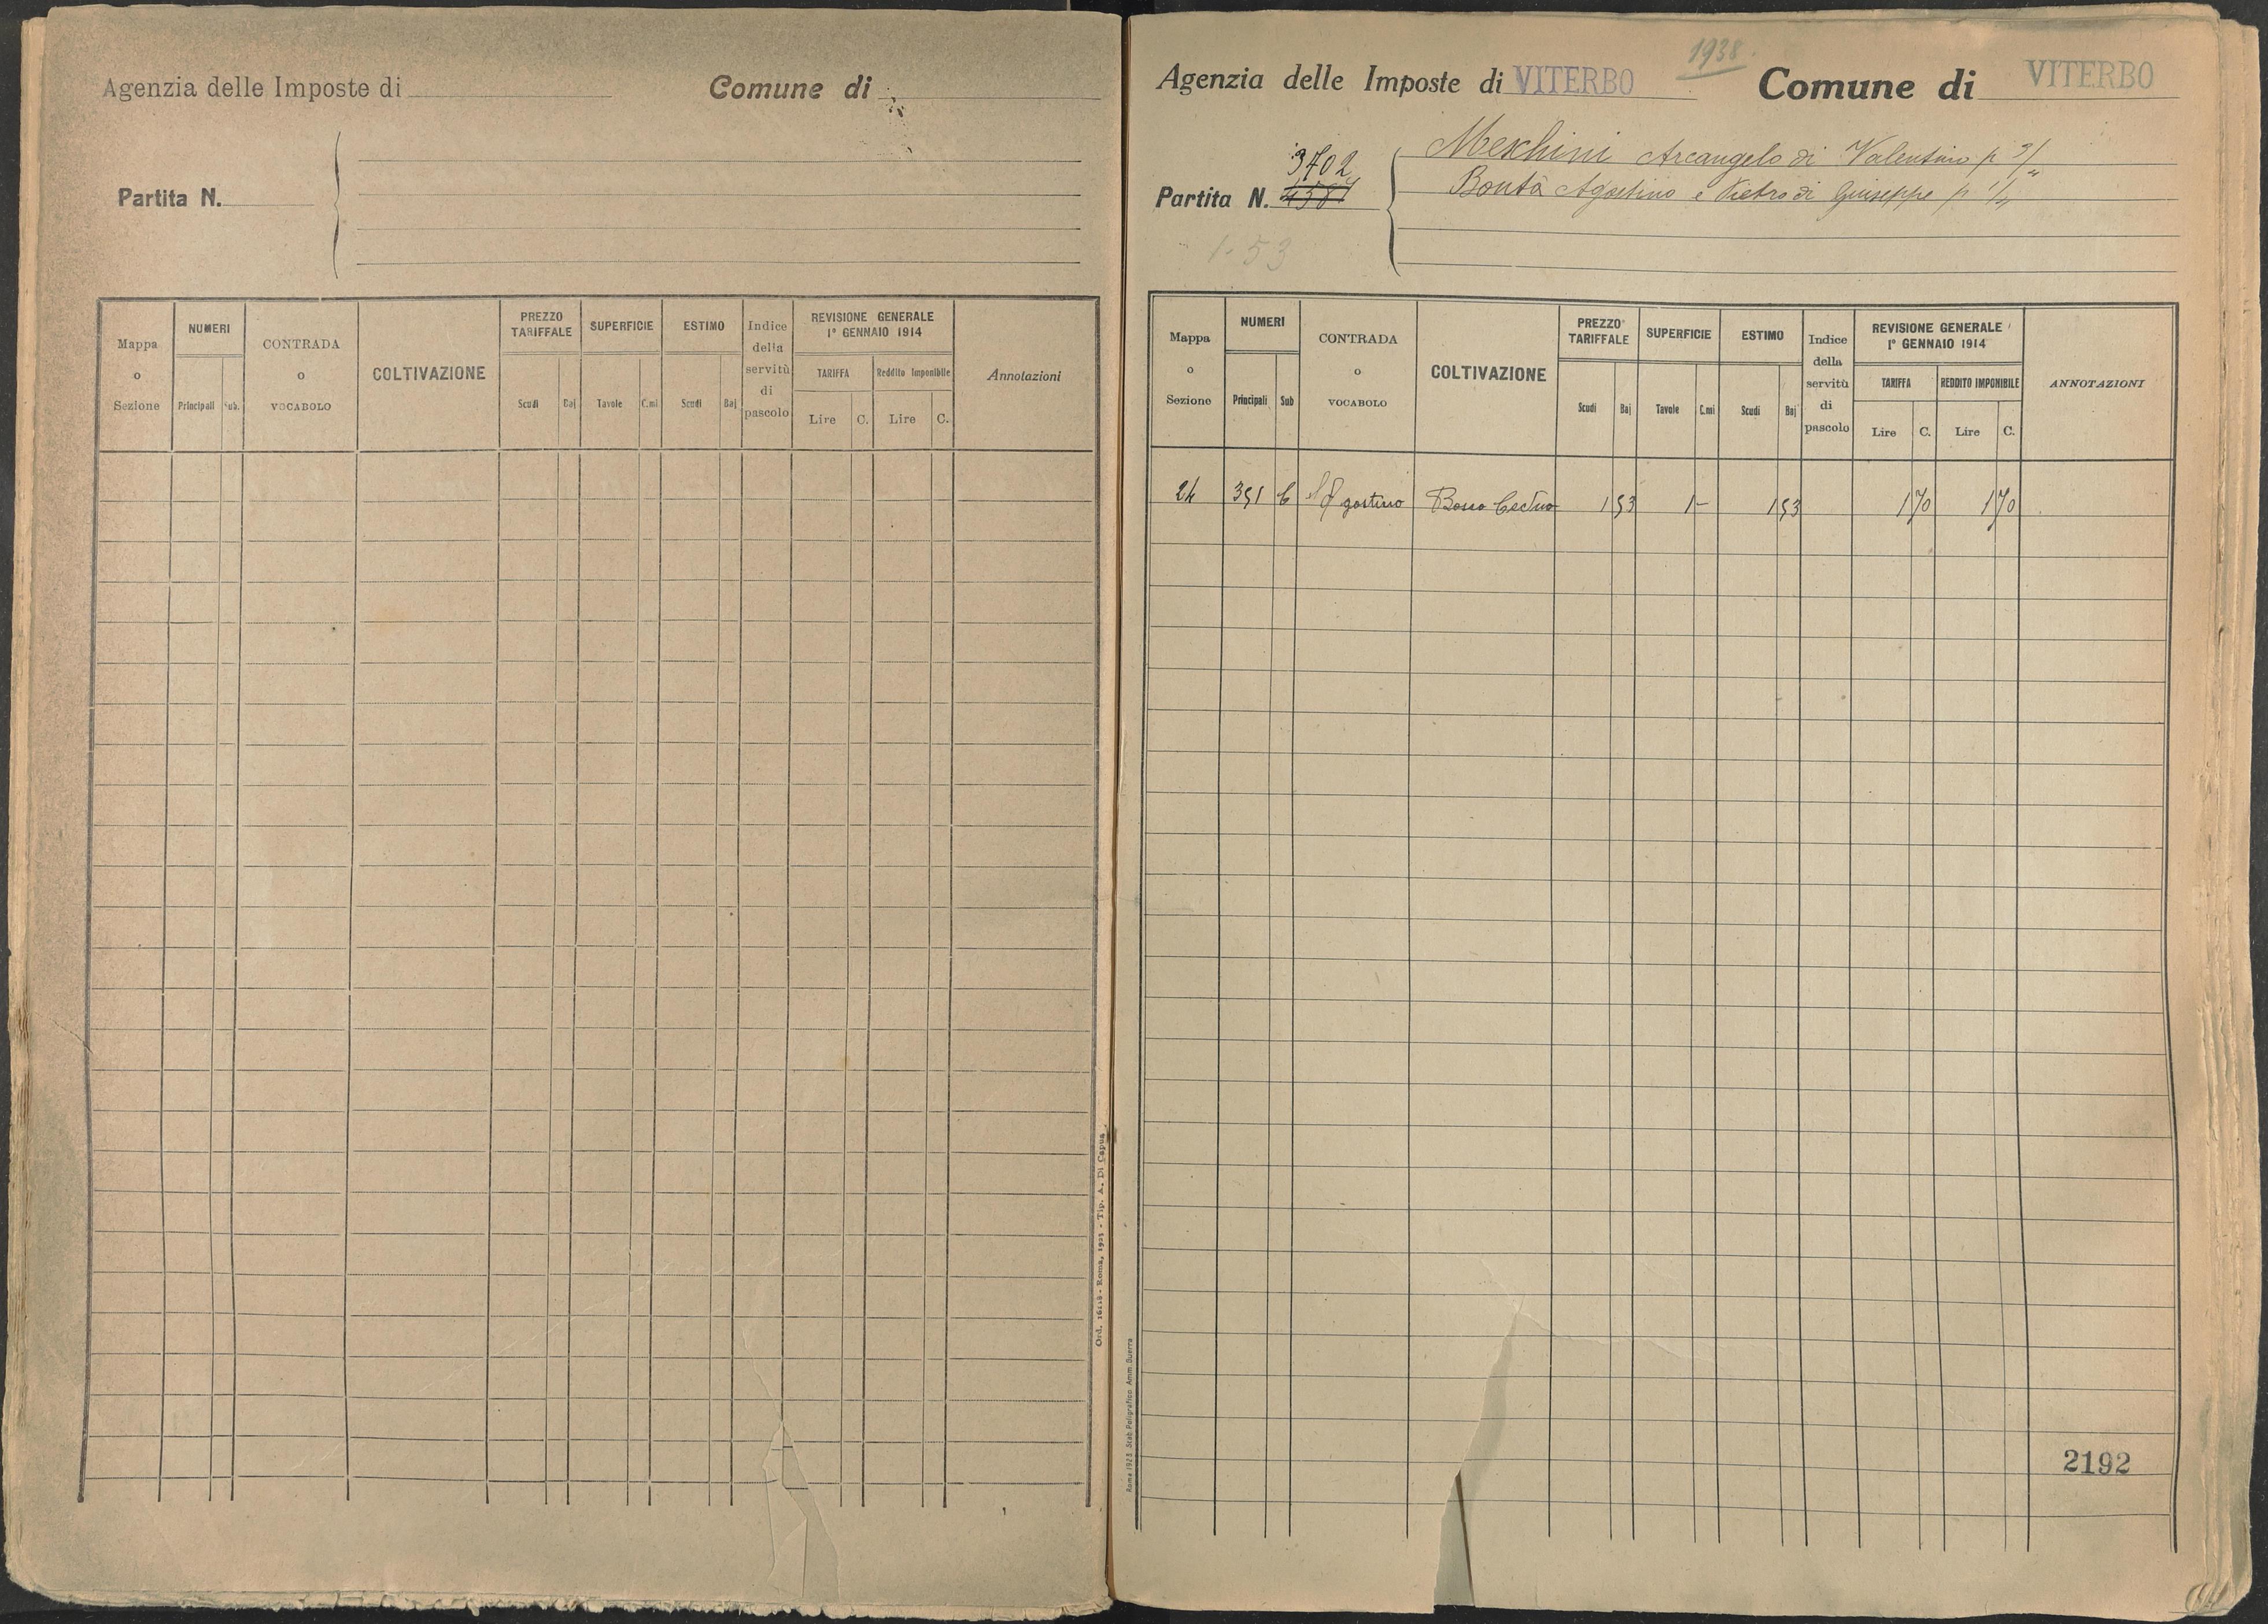 Agenzia delle Imposte di
Comune di
Partita N.
Mappa o Sezione
NUMERI
Principali
Sub.
CONTRADA o VOCABOLO
COLTIVAZIONE
PREZZO TARIFFALE
Scudi
Baj
SUPERFICIE
Tavole
C.mi
ESTIMO
Scudi
Baj
Indice della servitù di pascolo
REVISIONE GENERALE
1° GENNAIO 1914
TARIFFA
Lire
C.
Reddito Imponibile
Lire
C.
Annotazioni
Tip. A. Di Capua
1938
Agenzia delle Imposte di VITERBO
Comune di VITERBO
Partita N. 4587
3702
1.53
Meschini Arcangelo di Valentino p
Bontà Agostino e Pietro di Giuseppe p
Mappa o Sezione
NUMERI
Principali
Sub
CONTRADA o VOCABOLO
COLTIVAZIONE
PREZZO TARIFFALE
Scudi
Baj
SUPERFICIE
Tavole
C.mi
ESTIMO
Scudi
Baj
Indice della servitù di pascolo
REVISIONE GENERALE
1° GENNAIO 1914
TARIFFA
Lire
C.
REDDITO IMPONIBILE
Lire
C.
ANNOTAZIONI
24 351 S Agostino Bosco Ceduo 1 53 1 - 1 53 1 70 1 70
Stab. Poligrafico Amm. Guerra
2192